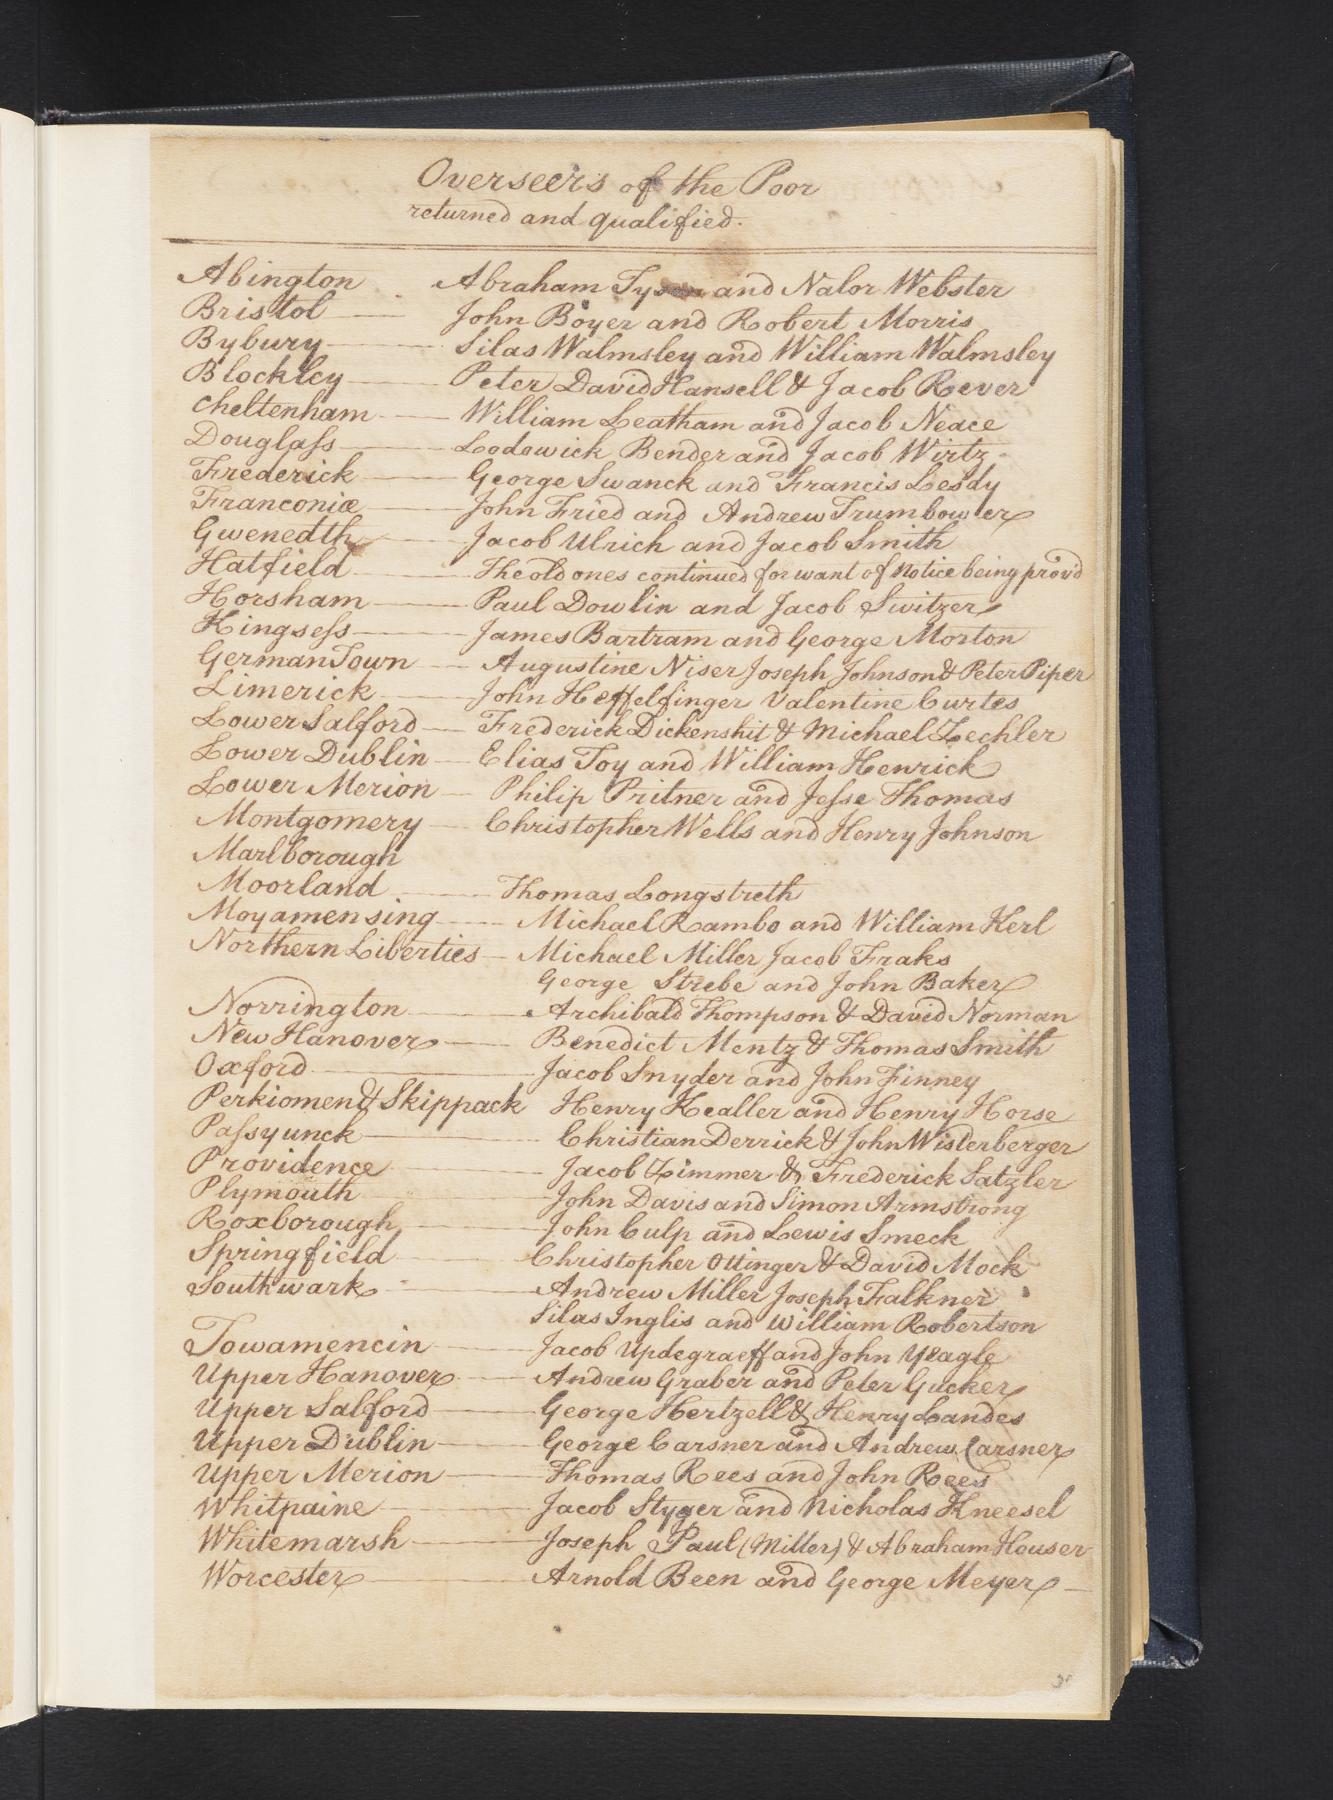 Overseers of the Poor
returned and qualified.
Abington Abraham Tyson and Nalor Webster
Bristol John Boyer and Robert Morris
Bybury Silas Walmsley and William Walmsley
Blockley Peter David Hansell & Jacob Rever
Cheltenham William Leatham and Jacob Neace
Douglass Lodowick Bender and Jacob Wirtz
Frederick George Swanck and Francis Lesdy
Franconia John Fried and Andrew Trumbower
Gwenedth Jacob Ulrich and Jacob Smith
Hatfield The old ones continued for want of Notice being prov'd
Horsham Paul Dowlin and Jacob Switzer
Kingsess James Bartram and George Morton
GermanTown Augustine Niser Joseph Johnson & Peter Piper
Limerick John Heffelfinger Valentine Curtes
Lower Salford Frederick Dickenshit & Michael Zechler
Lower Dublin Elias Toy and William Henrick
Lower Merion Philip Pritner and Jesse Thomas
Montgomery Christopher Wells and Henry Johnson
Marlborough
Moorland Thomas Longstreth
Moyamensing Michael Rambo and William Kerl
Northern Liberties Michael Miller Jacob Fraks
George Strebe and John Baker
Norrington Archibald Thompson & David Norman
New Hanover Benedict Mentz & Thomas Smith
Oxford Jacob Snyder and John Finney
Perkiomen & Skippack Henry Kealler and Henry Horse
Passyunck Christian Derrick & John Wisterberger
Providence Jacob Zimmer & Frederick Satzler
Plymouth John Davis and Simon Armstrong
Roxborough John Culp and Lewis Smeck
Springfield Christopher Ottinger & David Mock
Southwark Andrew Miller Joseph Falkner
Silas Inglis and William Robertson
Towamencin Jacob Updegraeff and John Yeagle
Upper Hanover Andrew Graber and Peter Gucker
Upper Salford George Hertzell & Henry Landes
Upper Dublin George Carsner and Andrew Carsner
Upper Merion Thomas Rees and John Rees
Whitpaine Jacob Styger and Nicholas Kneesel
Whitemarsh Joseph Paul (Miller) & Abraham Houser
Worcester Arnold Been and George Meyer